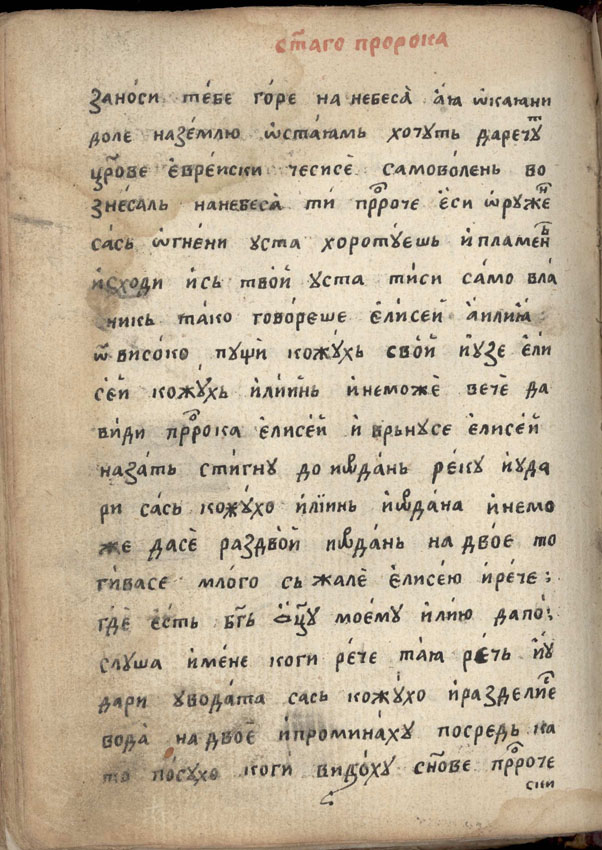 ст҃аго пророка
заноси́ те́бе го́ре на небеса̀ а́ꙗ ѡ҆каꙗни
доле назе́млю ѡ҆ста́ꙗмь хотуть даречу́т
цр҃ове е҆вре́иски чесисѐ самово́лень во
зне́саль нанебеса̀ ти́ прⷪ҇роче е҆си ѡ҆руже́н
сась ѡ҆гне́ни уста хоротуе́шь и҆пламен
и҆сходи и҆сь тво́й уста ти́си само вла́
никь тако говореше е҆лисей а҆илиꙗ̀
ѿ високо пущѝ кожу́хь свой и҆узе е҆ли
се́й кожу́хь и҆ли́инь и҆неможѐ вечѐ да
ви́ди прⷪ҇рока е҆лисе́й и҆ врьнусе е҆лисе́й
наза́ть стигну до иѡ҆да́нь ре́ку и҆уда
ри сась кожу́хо и҆лїинь иѡ҆да́на и҆немо
же дасѐ раздво́й иѡ҆да́нь на дво́е то
ги́васе мло́го сь жалѐ е҆лисе́ю и҆ре́че :
гдѐ е҆сть бг҃ь ѻ҆ц҃у мое́му и҆ли́ю дапо́
слуша и҆ме́не коги ре́че та́ꙗ ре́чь и҆у́
дари увода́та сась кожу́хо и҆раздели́се
вода̀ на двоѐ и҆промина́ху посредь ка
то по́сухо коги́ видо́ху сн҃ове прⷪ҇роче
ски